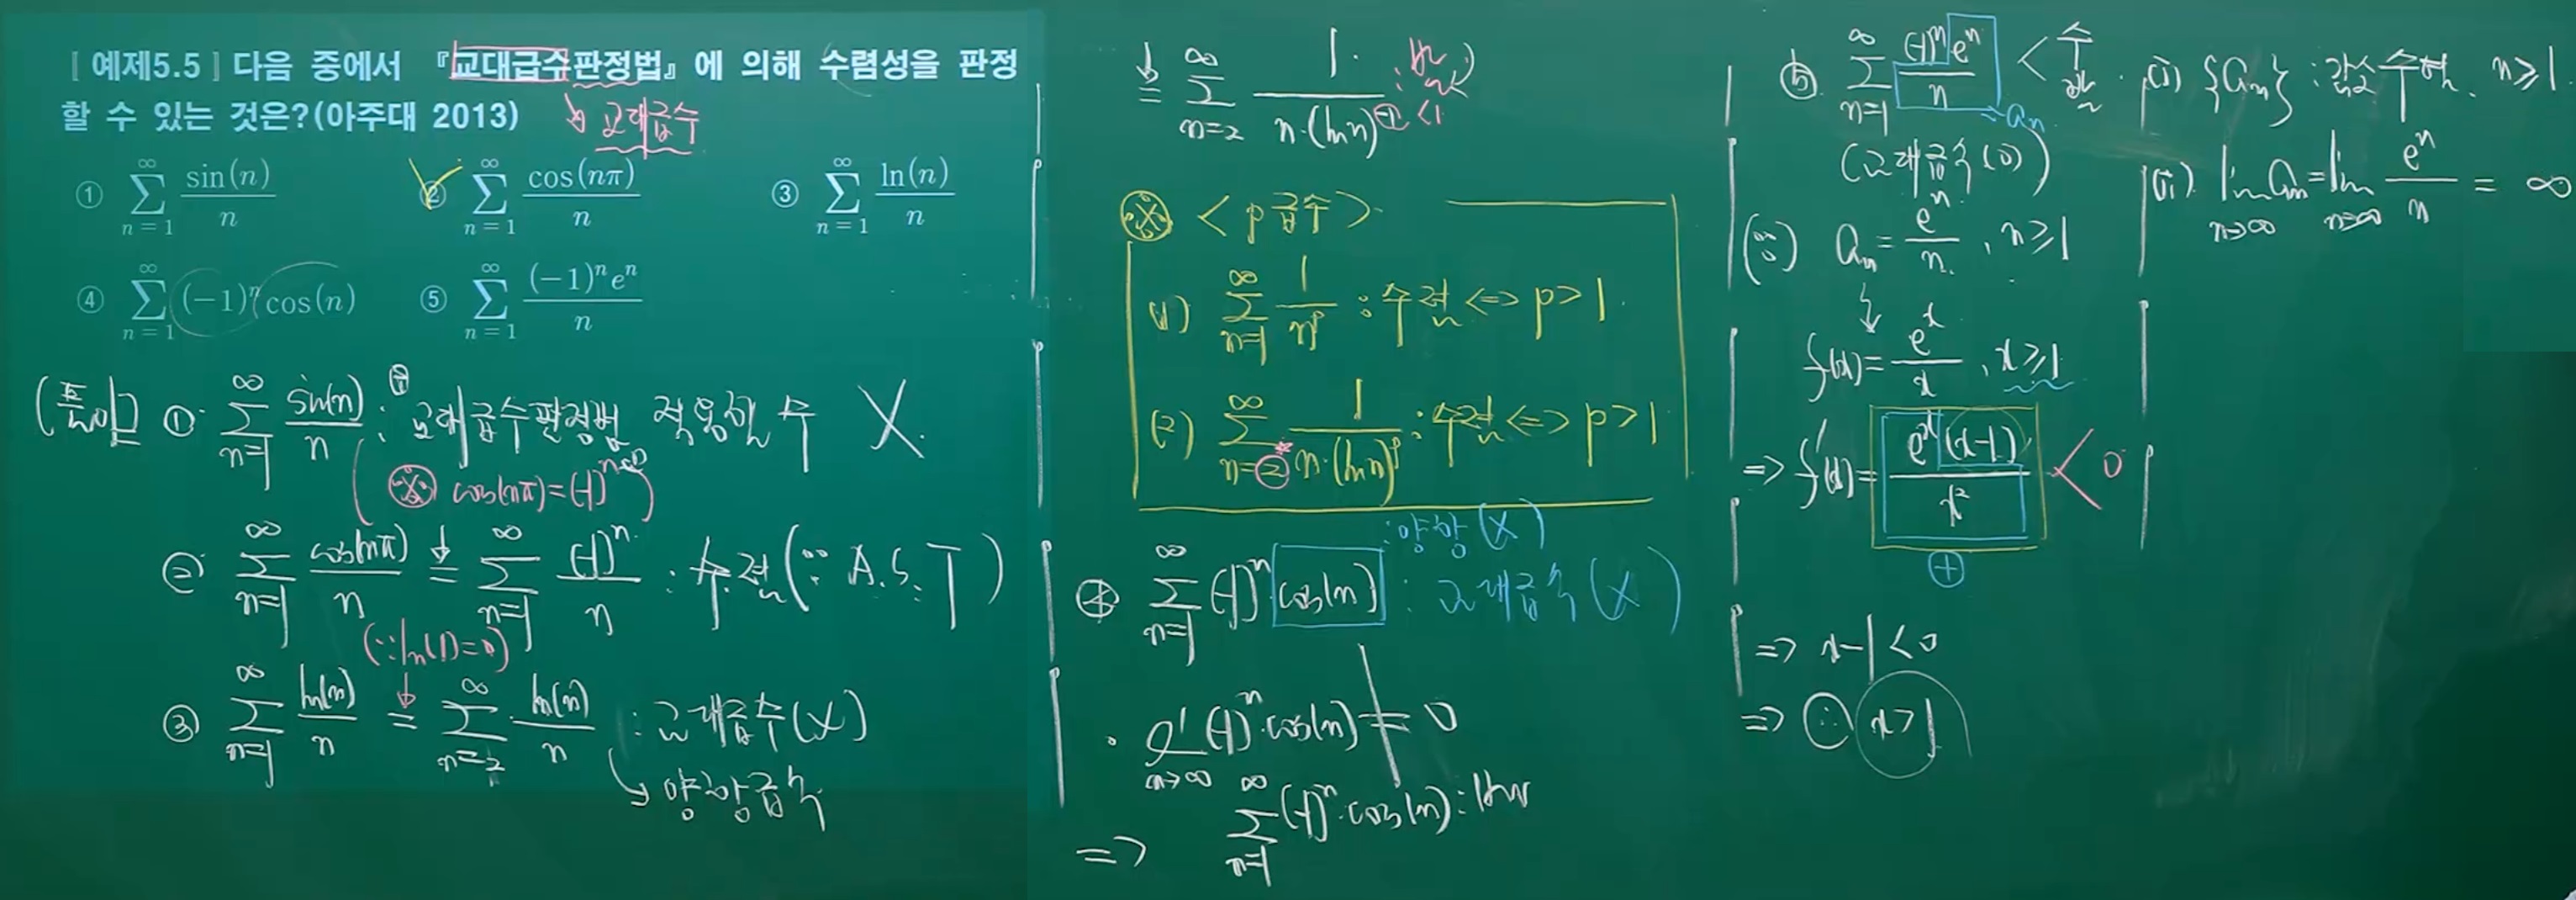 [ 예제5.5 ] 다음 중에서 『교대급수판정법』에 의해 수렴성을 판정
할 수 있는 것은?(아주대 2013)
↘ 교대급수
① ∑_{n=1}^{∞} sin(n)/n ② ∑_{n=1}^{∞} cos(nπ)/n ③ ∑_{n=1}^{∞} ln(n)/n
④ ∑_{n=1}^{∞} (-1)^n cos(n) ⑤ ∑_{n=1}^{∞} (-1)^n e^n/n
(풀이) ① ∑_{n=1}^{∞} sin(n)/n : 교대급수판정법 적용할 수 X.
(※ cos(nπ)=(-1)^n)
② ∑_{n=1}^{∞} cos(nπ)/n = ∑_{n=1}^{∞} (-1)^n/n : 수렴(∵ A.S.T)
(∵ ln(1)=0)
③ ∑_{n=1}^{∞} ln(n)/n = ∑_{n=2}^{∞} ln(n)/n : 교대급수(X)
↳ 양항급수
= ∑_{n=2}^{∞} 1/(n·(ln n)^{-1}) : 발산
-1 < 1
※ <p급수>
(1) ∑_{n=1}^{∞} 1/n^p : 수렴 <=> p>1
(2) ∑_{n=2}^{∞} 1/(n·(ln n)^p) : 수렴 <=> p>1
: 양항(X)
④ ∑_{n=1}^{∞} (-1)^n cos(n) : 교대급수(X)
· lim_{n→∞} (-1)^n·cos(n) ≠ 0
=> ∑_{n=1}^{∞} (-1)^n·cos(n) : div
⑤ ∑_{n=1}^{∞} (-1)^n e^n/n < 수 발
→ a_n
(교대급수(O))
(∵) a_n = e^n/n, n≥1
↓
f(x) = e^x/x, x≥1
=> f'(x) = e^x(x-1)/x² < 0
⊕
=> x-1<0
=> ∴ x>1
(i) {a_n} : 감소수열. n≥1
(ii). lim_{n→∞} a_n = lim_{n→∞} e^n/n = ∞